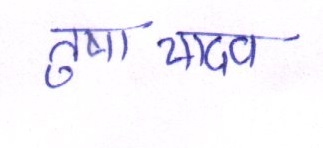 तुषा यादव